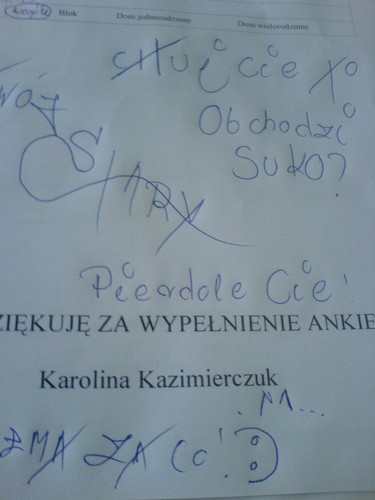 Blok Dom jednorodzinny Dom wielorodzinny
cHuj cie to
Obchodzi
SUKO?
WÓJ
STARY
Pierdole Cie!
ZIĘKUJĘ ZA WYPEŁNIENIE ANKIE
Karolina Kazimierczuk
. NA...
ŻMA ZA CO!